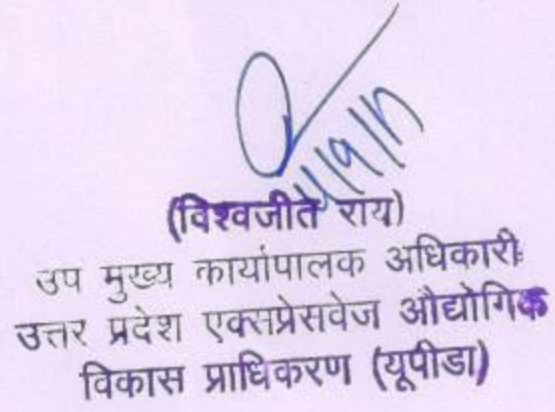 (विश्वजीत राय)
उप मुख्य कार्यापालक अधिकारी
उत्तर प्रदेश एक्सप्रेसवेज औद्योगिक
विकास प्राधिकरण (यूपीडा)